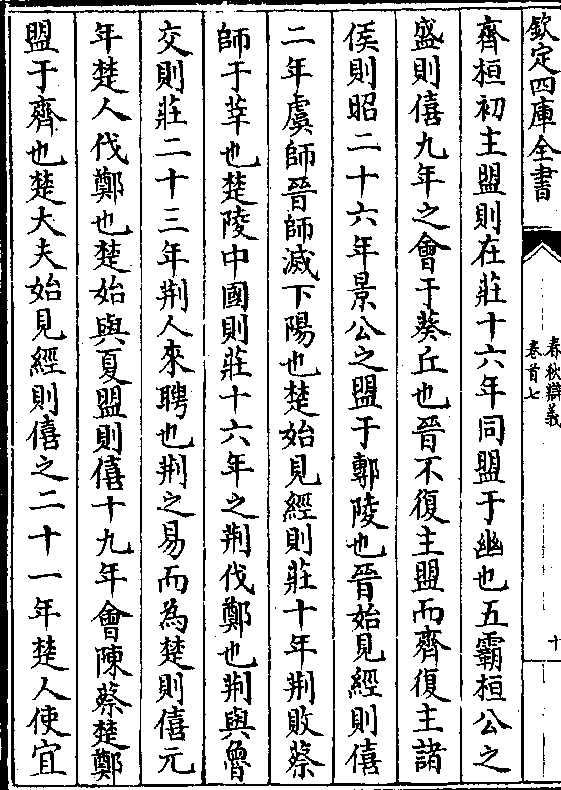 欽定四庫全書
春秋辯義
卷首七
十
齊桓初主盟則在莊十六年同盟于幽也五霸桓公之
盛則僖九年之會于葵丘也晉不復主盟而齊復主諸
侯則昭二十六年景公之盟于鄟陵也晉始見經則僖
二年虞師晉師滅下陽也楚始見經則莊十年荆敗蔡
師于莘也楚陵中國則莊十六年之荆伐鄭也荆與魯
交則莊二十三年荆人來聘也荆之易而為楚則僖元
年楚人伐鄭也楚始與夏盟則僖十九年會陳蔡楚鄭
盟于齊也楚大夫始見經則僖之二十一年楚人使宜